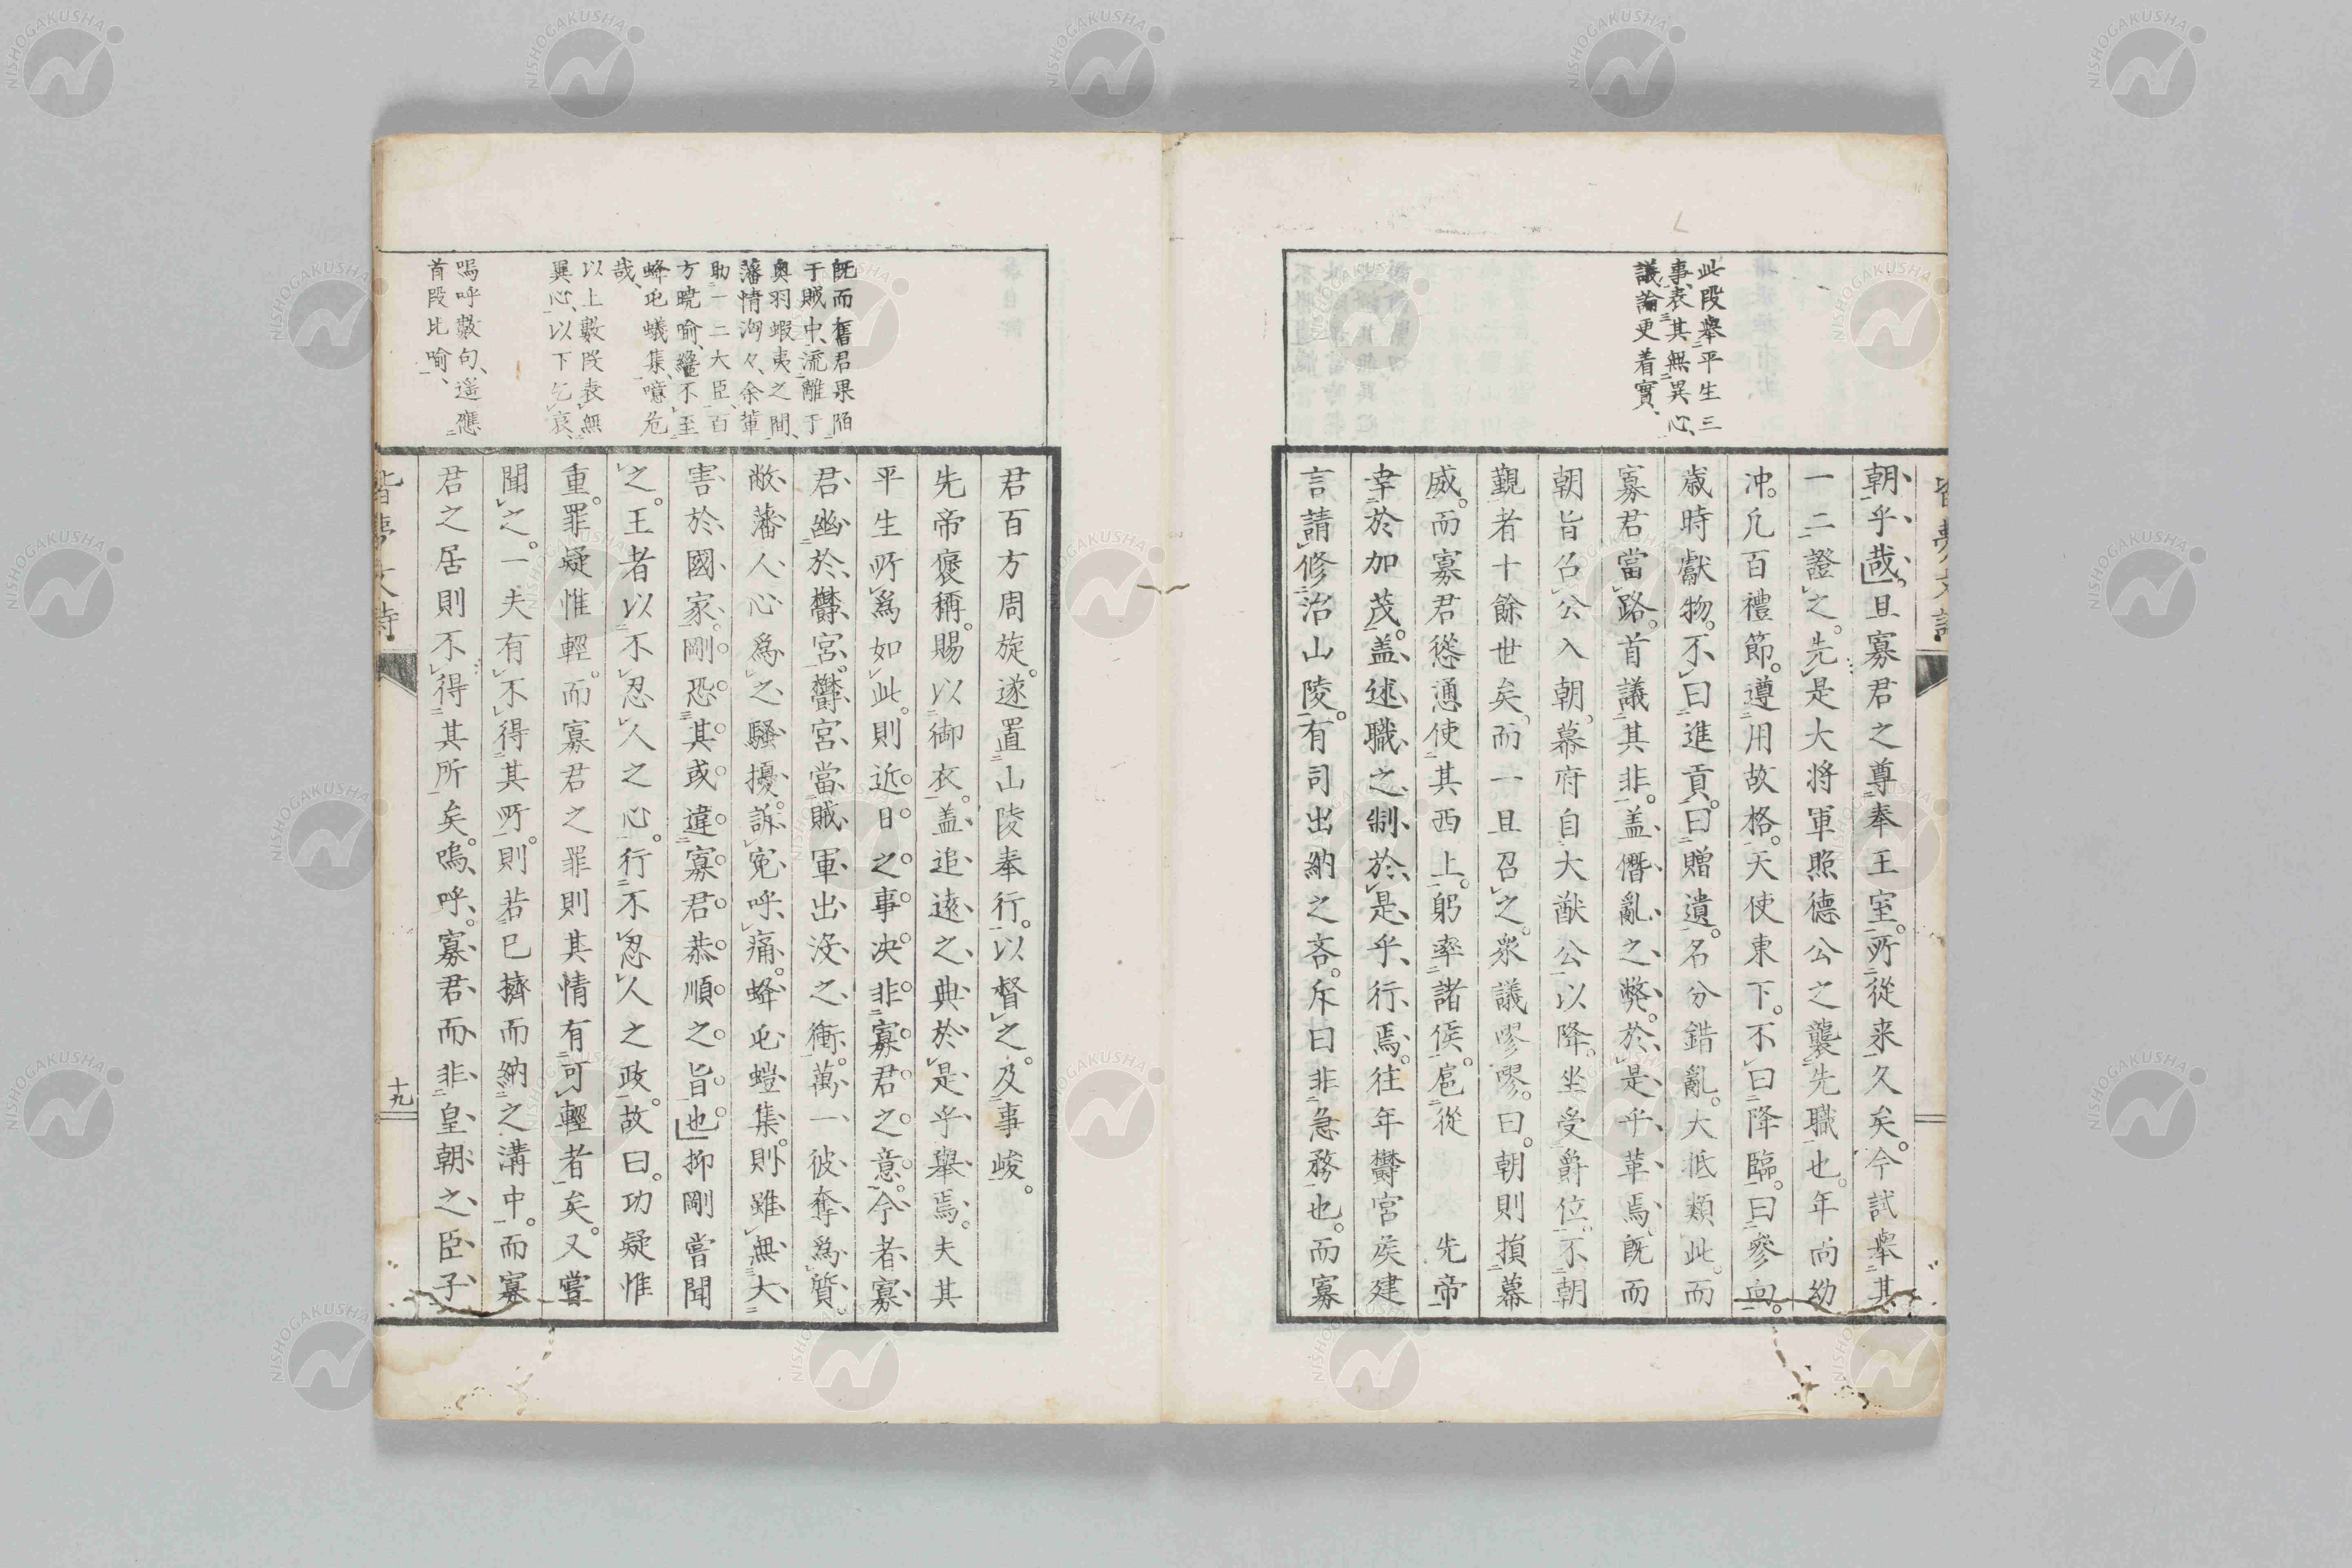 此段舉平生三
事、表其無異心、
議論更着實、
朝乎哉。且寡君之尊奉王室。所從来久矣。今試舉其
一二證之。先是大将軍照德公之襲先職也。年尚幼
冲。凡百禮節。遵用故格。天使東下。不曰降臨。曰參向。
歳時獻物。不曰進貢。曰贈遺。名分錯亂。大抵類此。而
寡君當路。首議其非。盖僭亂之弊。於是乎革焉。既而
朝旨召公入朝。幕府自大猷公以降。坐受爵位。不朝
覲者十餘世矣。而一旦召之。衆議嘐嘐。曰。朝則損幕
威。而寡君慫通使其西上。躬率諸侯。扈從 先帝
幸於加茂。盖述職之制於是乎行焉。往年欝宮矦建
言請修治山陵。有司出納之吝。斥曰非急務也。而寡
君百方周旋。遂置山陵奉行。以督之。及事峻。
先帝褒稱。賜以御衣。盖追遠之典於是乎舉焉。夫其
平生所爲如此。則近日之事。決非寡君之意。今者寡
君幽於欝宮。欝宮當賊軍出没之衝。萬一彼奪爲質。
敝藩人心爲之騷擾。訴寃呼痛。蜂屯螘集。則雖無大
害於國家。剛恐其或違寡君恭順之旨也。抑剛嘗聞
之。王者以不忍人之心。行不忍人之政。故曰。功疑惟
重。罪疑惟輕。而寡君之罪則其情有可輕者矣。又嘗
聞之。一夫有不得其所。則若已擠而納之溝中。而寡
君之居則不得其所矣。嗚呼。寡君而非皇朝之臣子
既而舊君果陷
于賊中、流離于
奥羽蝦夷之間、
藩情洶々、余輩
助一二大臣、百
方曉喩、纔不至
蜂屯蟻集、噫危
哉、
以上數段表無
異心、以下乞哀、
嗚呼數句、遥應
首段比喻、
十九